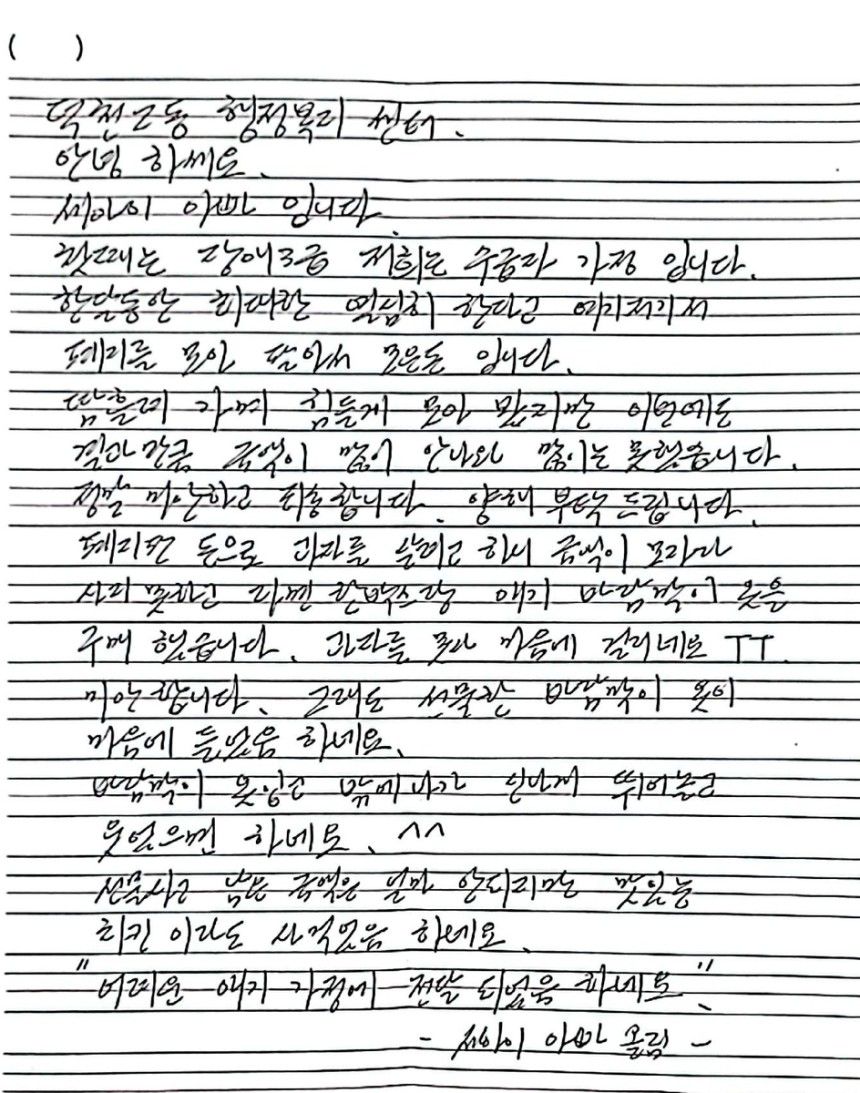 ( )
덕천2동 행정복지 센터.
안녕 하세요.
세아이 아빠 입니다.
첫째는 장애3급 저희는 수급자 가정 입니다.
한달동안 최대한 열심히 한다고 여기저기서
폐지를 모아 팔아서 모은돈 입니다.
땀흘려 가며 힘들게 모아 팔지만 이번에도
생각만큼 금액이 많이 안나와 많이는 못했습니다.
정말 미안하고 죄송합니다. 양해 부탁 드립니다.
폐지판 돈으로 과자를 살려고 하니 금액이 모자라
사지 못하고 바람막이 옷을
구매 했습니다. 과자를 못사 마음에 걸리네요 TT.
미안합니다. 그래도 선물한 바람막이 옷이
마음에 들었음 하네요.
바람막이 옷입고 밖에나가 신나게 뛰어놀고
웃었으면 하네요. ^^
선물사고 남은 금액은 얼마 안되지만 맛있는
치킨 이라도 사먹었음 하네요.
"어려운 애기 가정에 전달 되었음 하네요."
- 세아이 아빠 올림 -